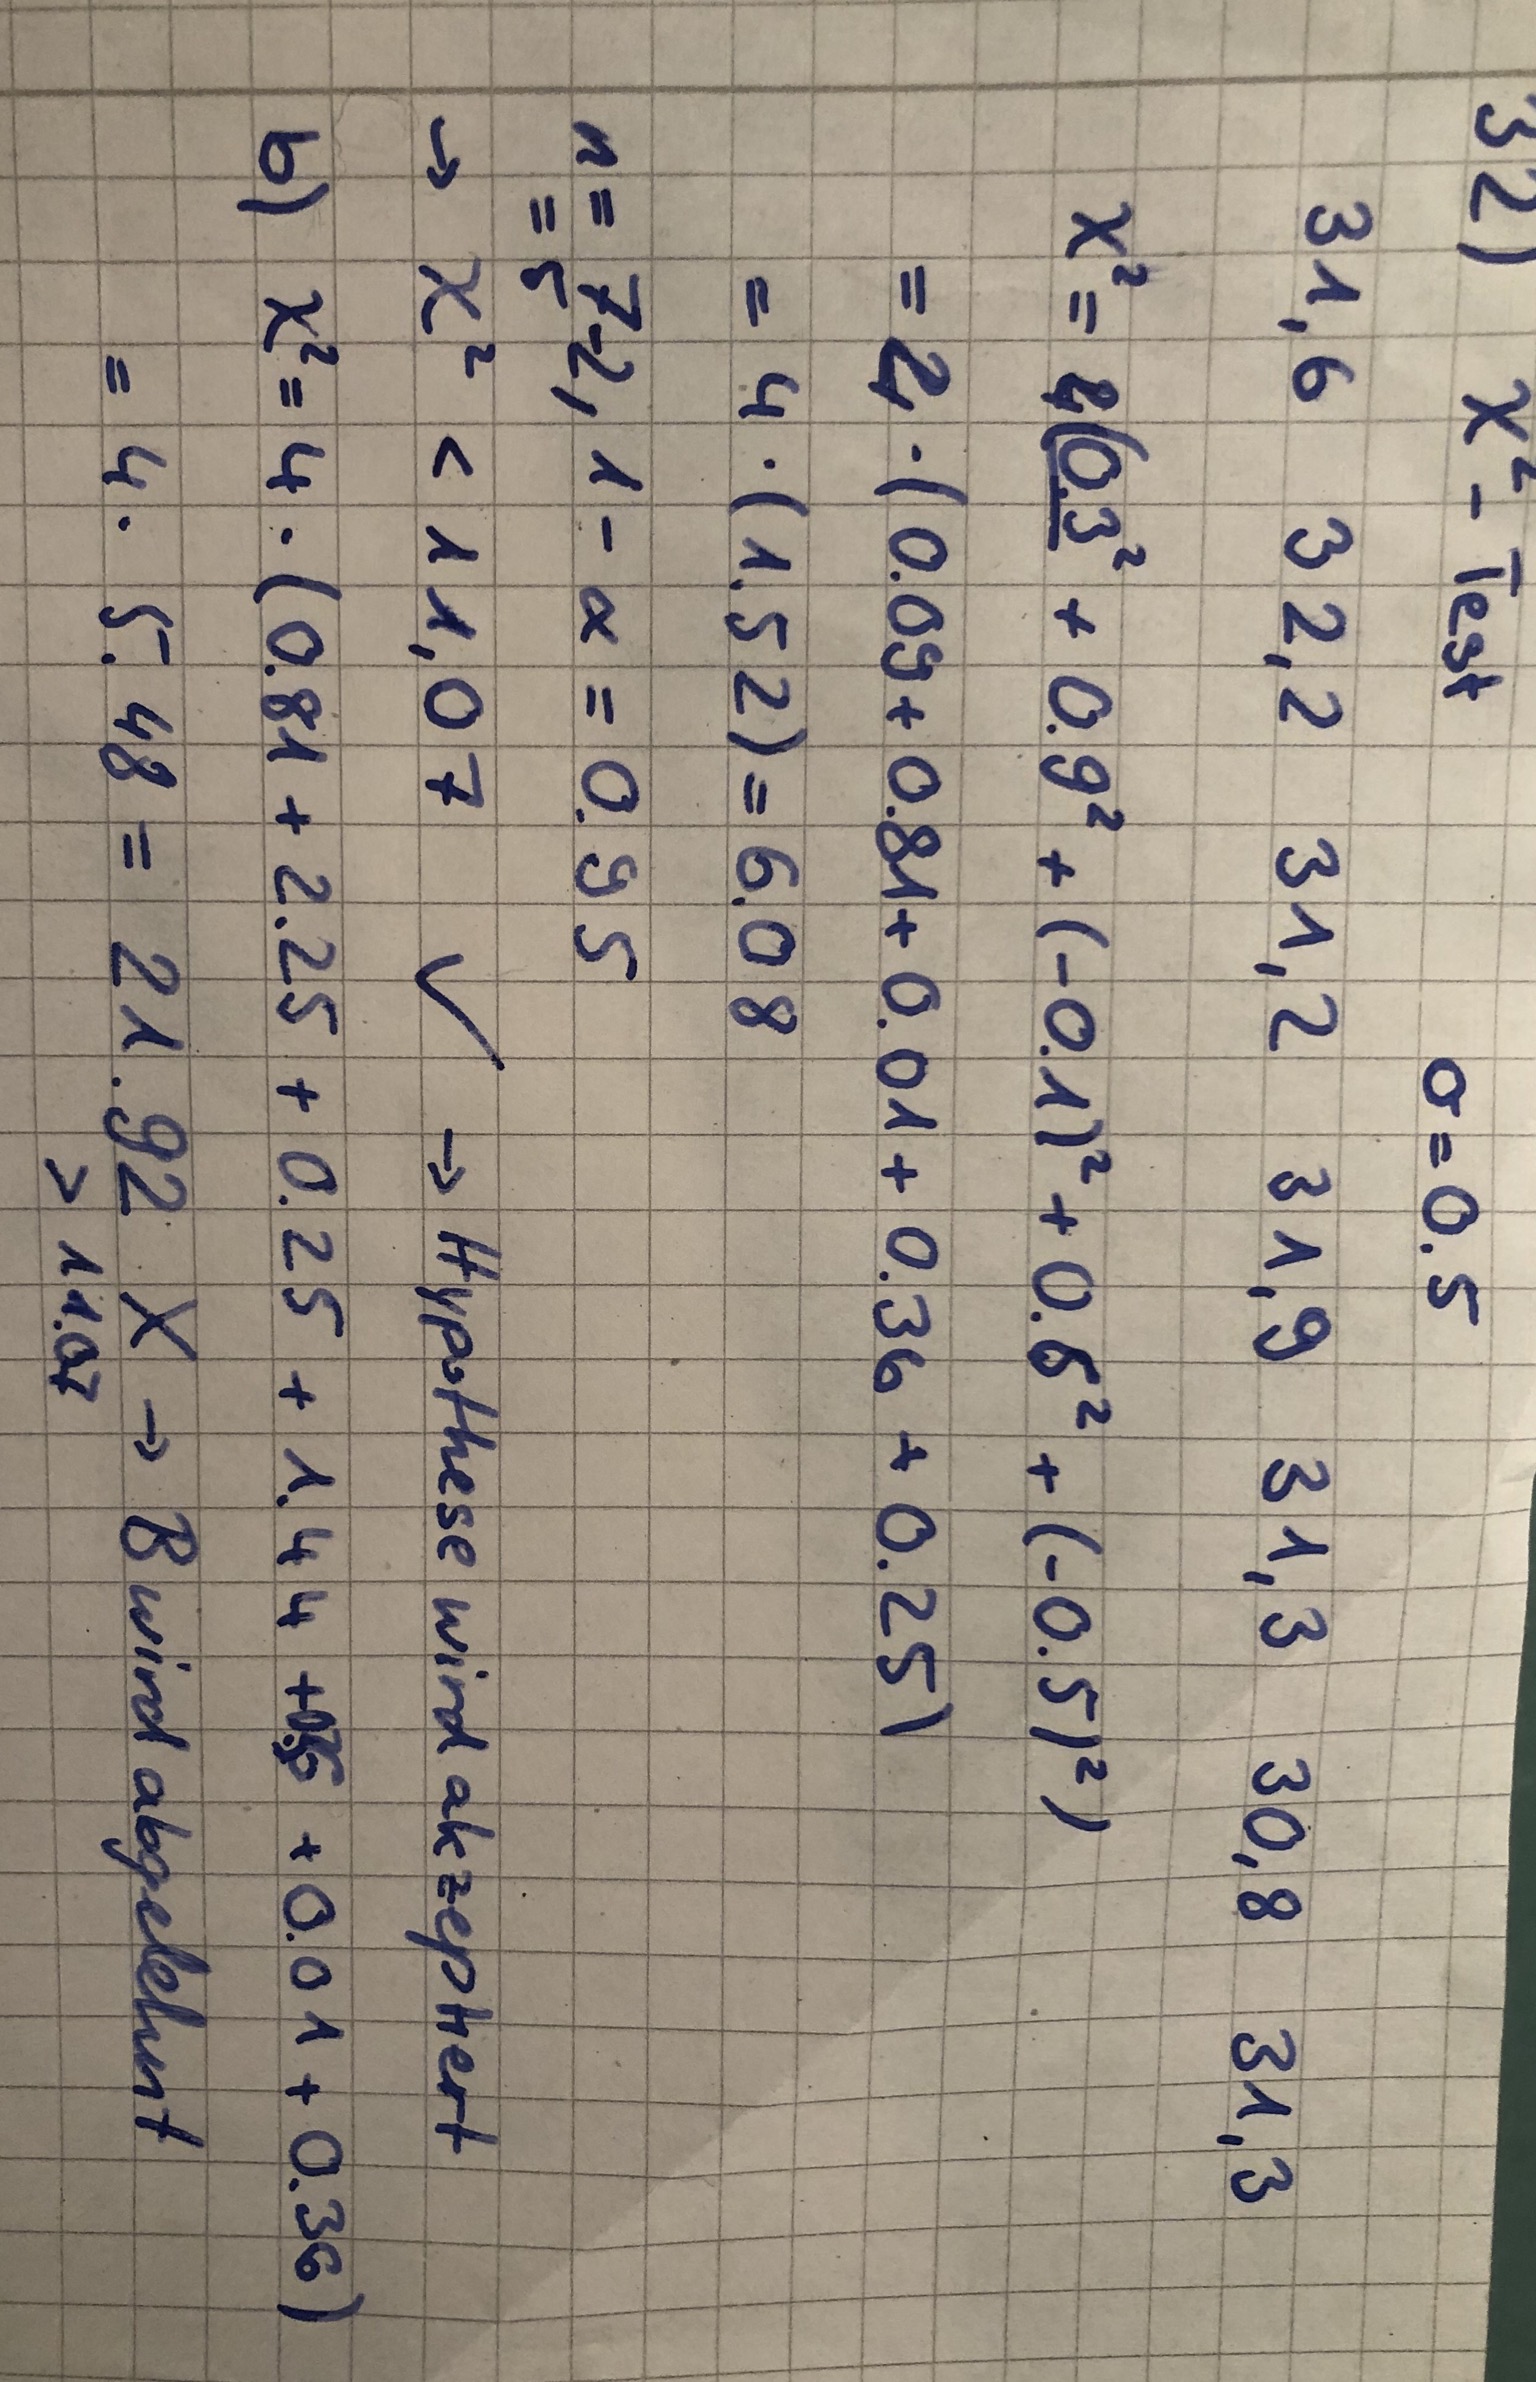 32) χ² - Test σ = 0.5
31,6 32,2 31,2 31,9 31,3 30,8 31,3
χ² = 4(0.3² + 0.9² + (-0.1)² + 0.6² + (-0.5)²)
= 2 · (0.09 + 0.81 + 0.01 + 0.36 + 0.25)
= 4 · (1.52) = 6.08
n = 7-2, 1 - α = 0.95
= 5
→ χ² < 11,07 ✓ → Hypothese wird akzeptiert
b) χ² = 4 · (0.81 + 2.25 + 0.25 + 1.44 + + 0.01 + 0.36)
= 4 · 5.48 = 21.92 X → B wird abgelehnt
> 11.07